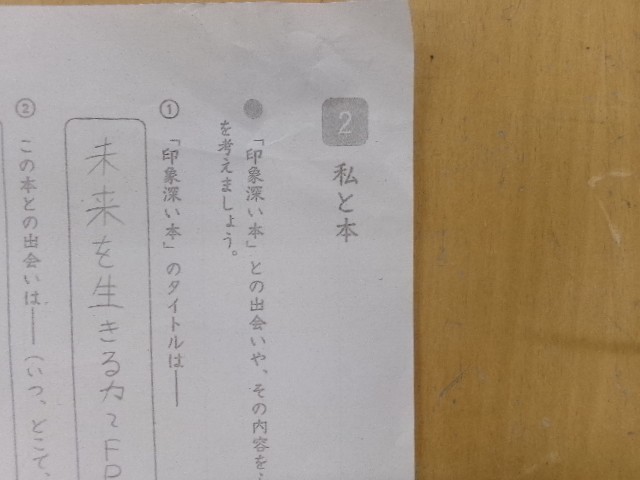 2 私と本
「印象深い本」との出会いや、その内容を
を考えましょう。
① 「印象深い本」のタイトルは――
未来を生きる力
② この本との出会いは――(いつ、どこで、